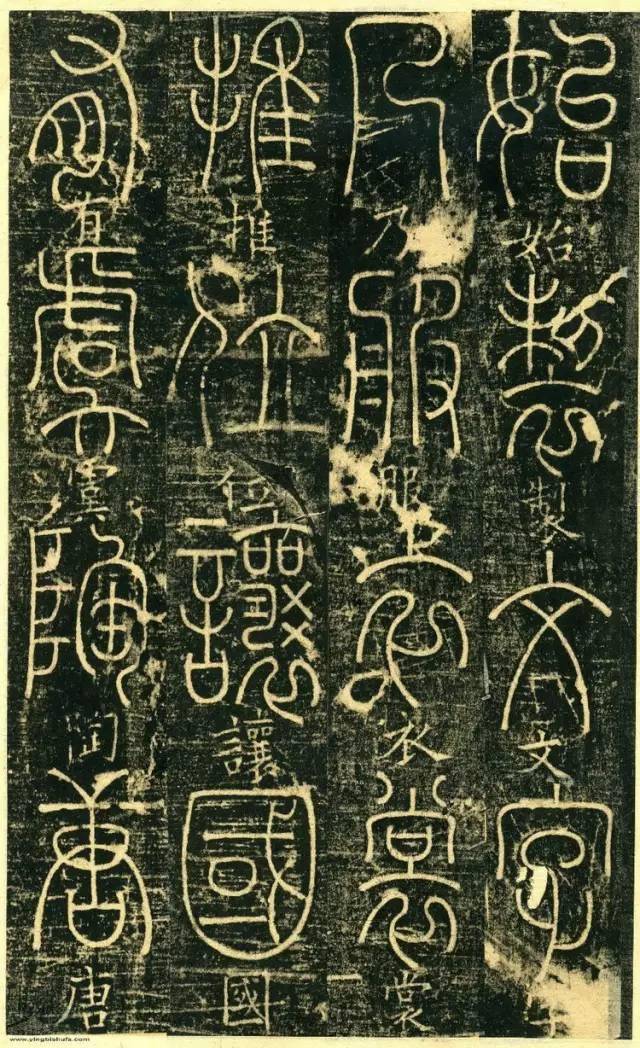 始始製製文文字字
乃乃服服衣衣裳裳
推推位位讓讓國國
有有虞虞陶陶唐唐
www.yingbishufa.com